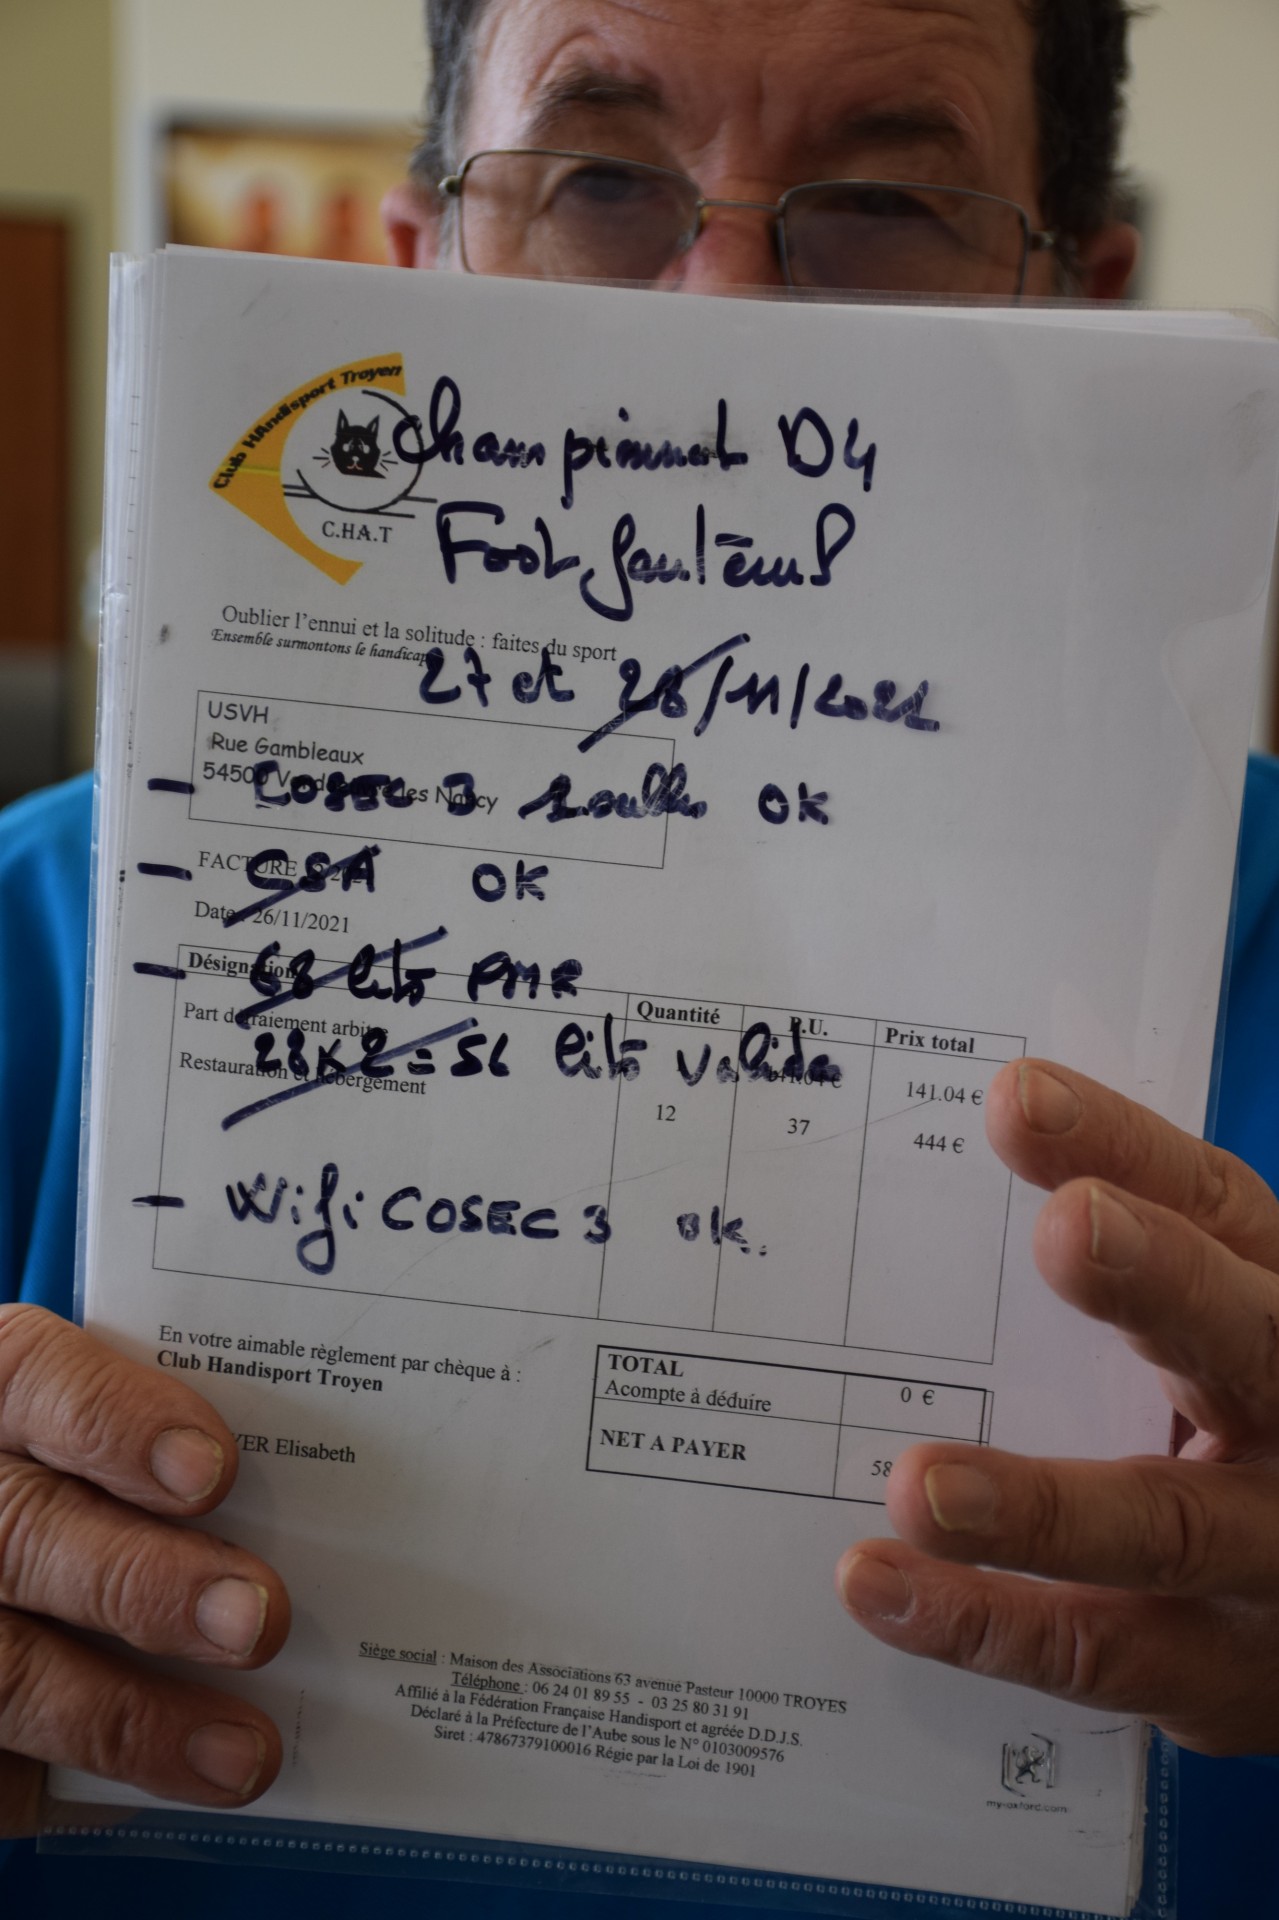 Club HAndisport Troyen
C.HA.T
Championnat D4
Foot fauteuil
Oublier l'ennui et la solitude : faites du sport
Ensemble surmontons le handicap
27 et 28/11/2021
USVH
Rue Gambleaux
54500 les Nancy
- COSEC 3 OK
FACTURE
- CSA OK
Date : 26/11/2021
- 68 lits PMR
Désignation Quantité P.U. Prix total
Part défraiement arbitre 141.04 € 141.04 €
28x2=56 lits valide
Restauration et hébergement 12 37 444 €
- Wifi COSEC 3 ok.
En votre aimable règlement par chèque à :
Club Handisport Troyen
TOTAL
Acompte à déduire 0 €
YER Elisabeth
NET A PAYER 58
Siège social : Maison des Associations 63 avenue Pasteur 10000 TROYES
Téléphone : 06 24 01 89 55 - 03 25 80 31 91
Affilié à la Fédération Française Handisport et agréée D.D.J.S.
Déclaré à la Préfecture de l'Aube sous le N° 0103009576
Siret : 47867379100016 Régie par la Loi de 1901
my-oxford.com